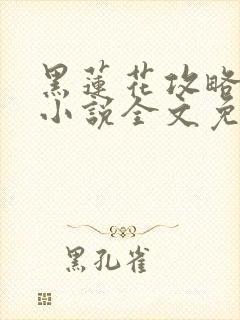 黑蓮花攻略
小說全文免
黑孔雀